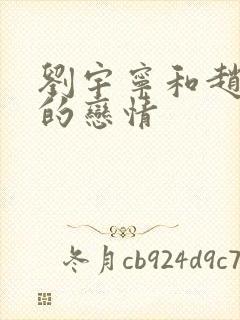 劉宇寧和趙
的戀情
冬月cb924d9c7